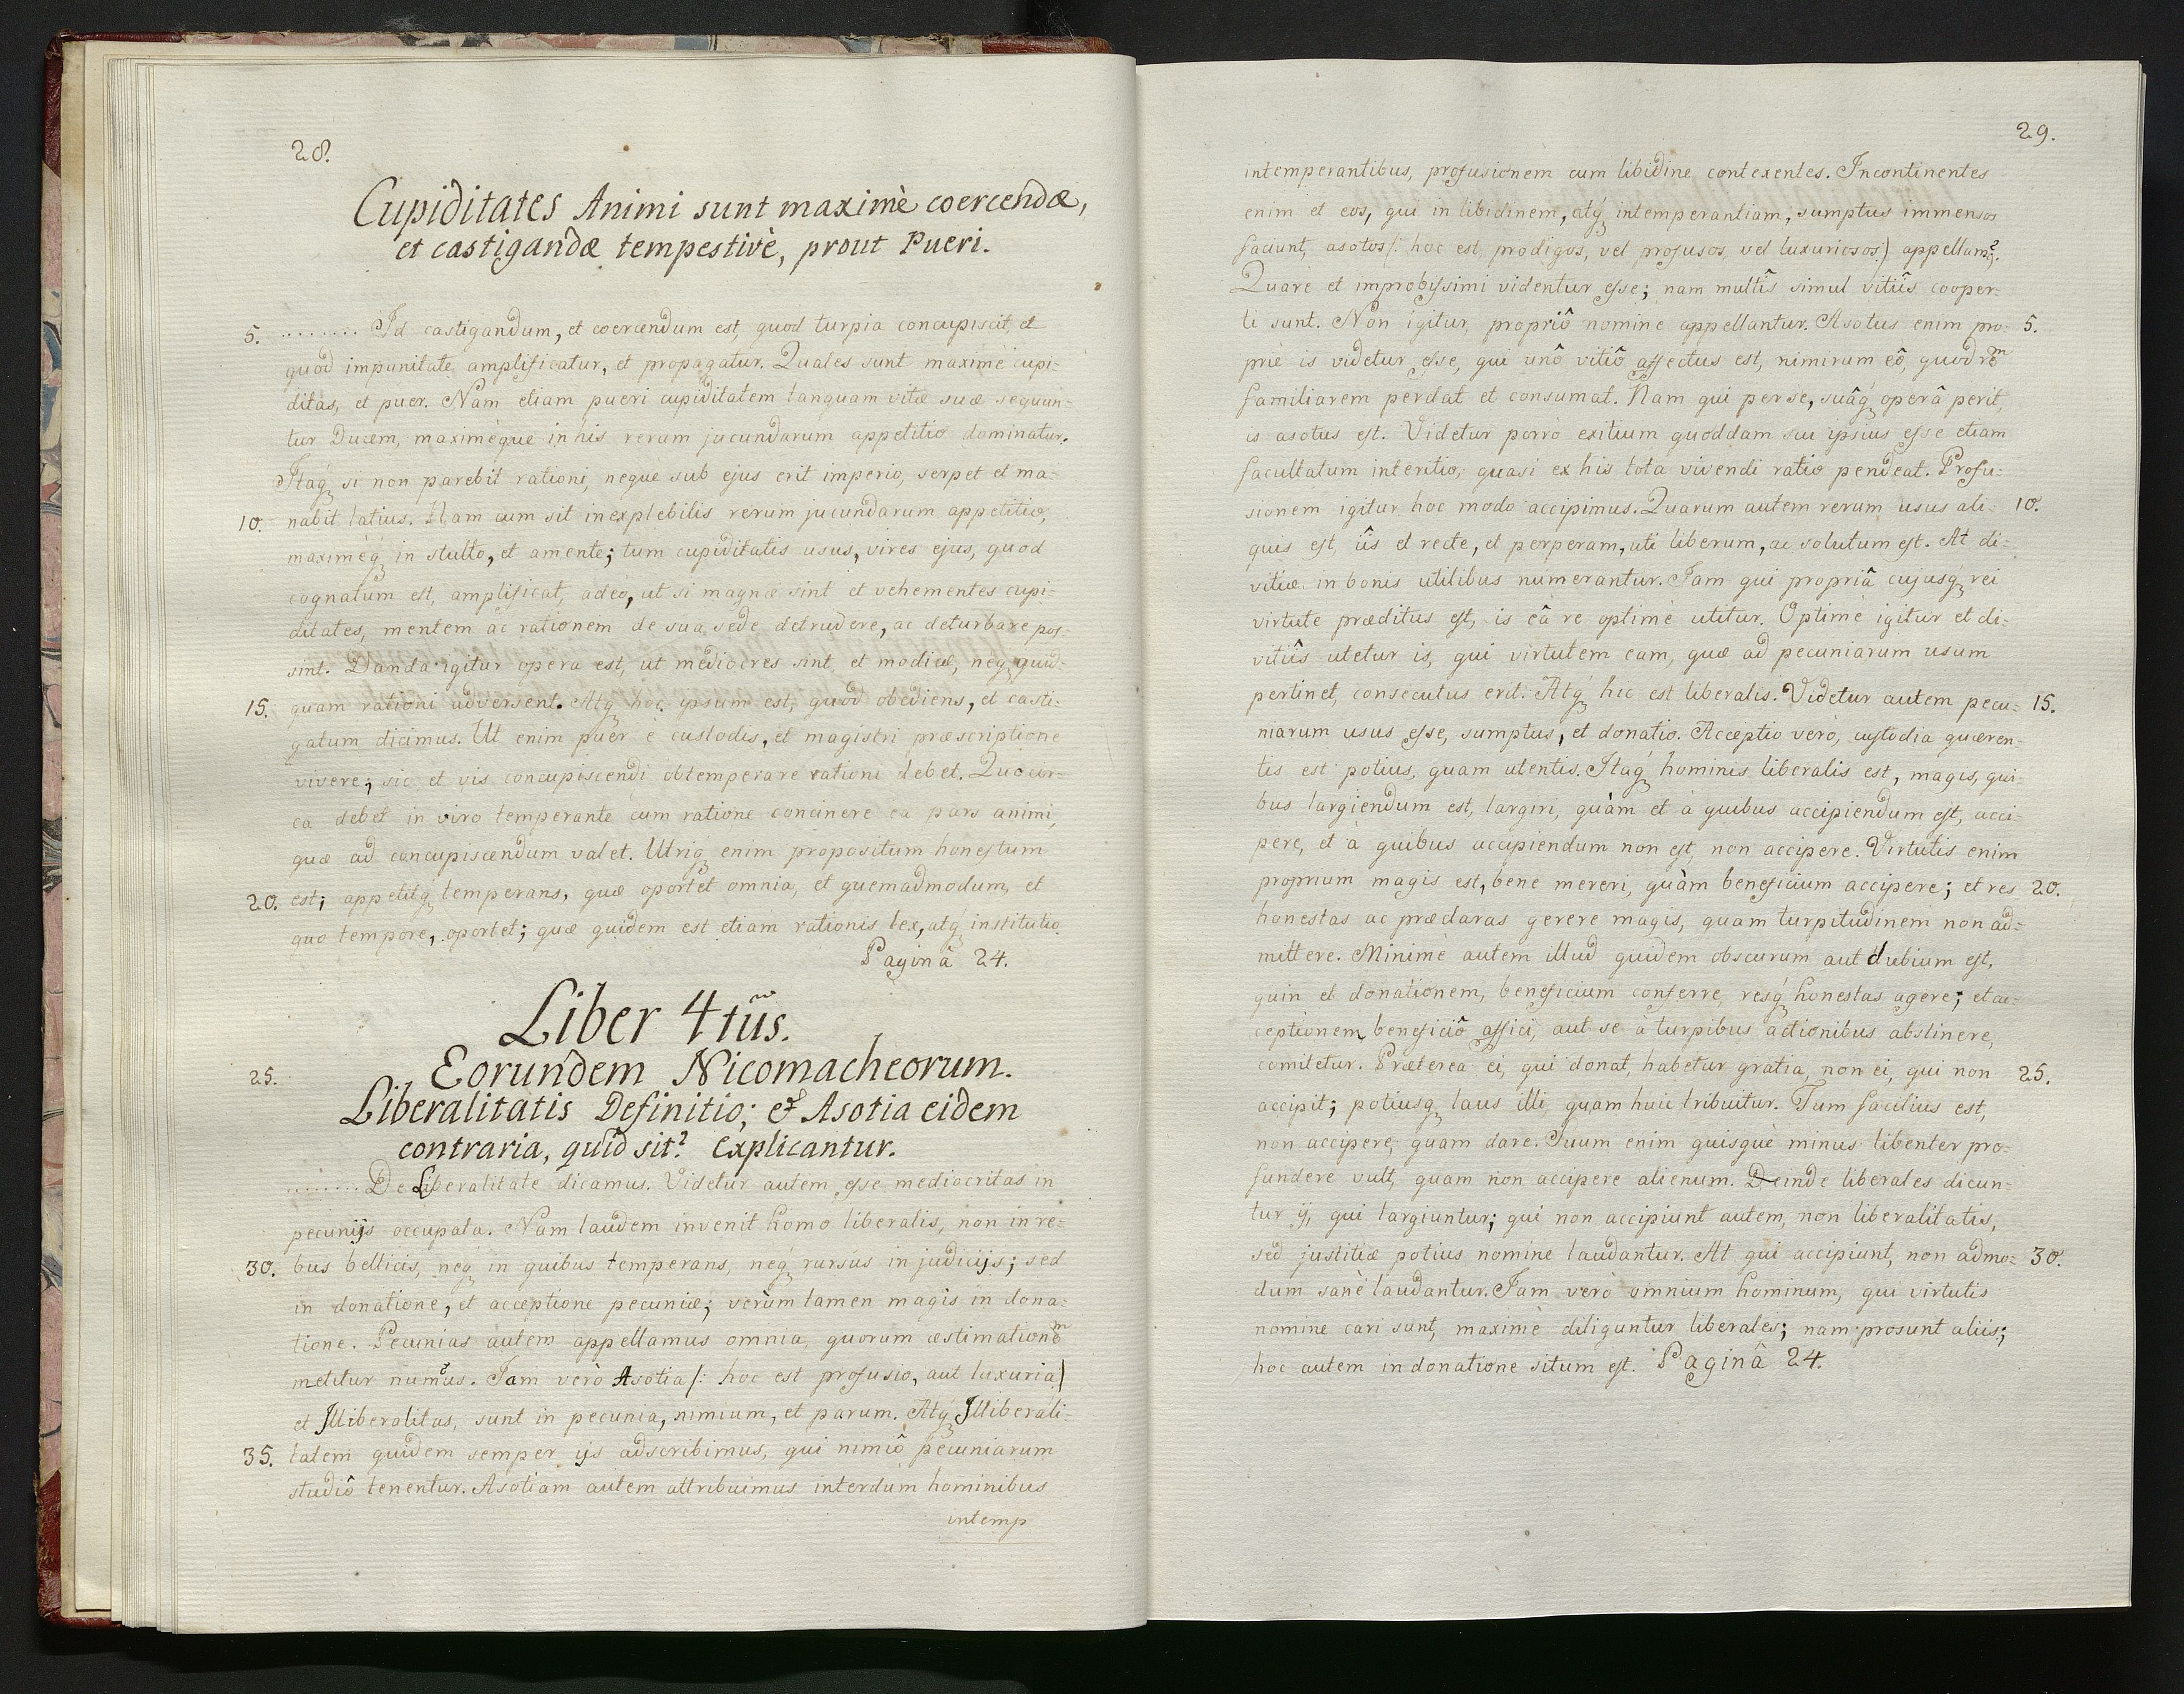 28.
Cupiditates Animi sunt maximè coercendæ,
et castigandæ tempestivè, prout Pueri.
5. ........ Id castigandum, et coercendum est, quod turpia concupiscit, et
quod impunitate amplificatur, et propagatur. Quales sunt maximè cupi-
ditas, et puer. Nam etiam pueri cupiditatem tanquam vitæ suæ sequun-
tur Ducem, maximèque in his rerum jucundarum appetitio dominatur.
Itaq́ꝫ si non parebit rationi, neque sub ejus erit imperio, serpet et ma-
10. nabit latius. Nam cum sit inexplebilis rerum jucundarum appetitio,
maximèq́ꝫ in stulto, et amente; tum cupiditatis usus, vires ejus, quod
cognatum est, amplificat, adeò, ut si magnæ sint et vehementes cupi-
ditates, mentem ac rationem de sua sede detrudere, ac deturbare pos-
sint. Danda igitur opera est, ut mediocres sint, et modicæ, neq́ꝫ quid-
15. quam rationi adversent. Atq́ꝫ hoc ipsum est, quod obediens, et casti-
gatum dicimus. Ut enim puer è custodis, et magistri præscriptione
vivere; sic et vis concupiscendi obtemperare rationi debet. Quocir-
ca debet in viro temperante cum ratione concinere ea pars animi,
quæ ad concupiscendum valet. Utriq́ꝫ enim propositum honestum
20. est; appetitq́ꝫ temperans, quæ oportet omnia, et quemadmodum, et
quo tempore, oportet; quæ quidem est etiam rationis lex, atq́ꝫ institutio.
Paginâ 24.
Liber 4tus.
25. Eorundem Nicomacheorum.
Liberalitatis Definitio; et Asotia eidem
contraria, quid sit? Explicantur.
........ De Liberalitate dicamus. Videtur autem esse mediocritas in
pecunijs occupata. Nam laudem invenit homo liberalis, non in re-
30. bus bellicis, neq́ꝫ in quibus temperans, neq́ꝫ rursus in judicijs; sed
in donatione, et acceptione pecuniæ; verùm tamen magis in dona-
tione. Pecunias autem appellamus omnia, quorum æstimationeᵐ
metitur numus. Iam verò Asotia /: hoc est profusio, aut luxuria/
et Illiberalitas, sunt in pecunia, nimium, et parum. Atq́ꝫ Illiberali-
35. tatem quidem semper ijs adscribimus, qui nimiô pecuniarum
studiô tenentur. Asotiam autem attribuimus interdum hominibus
intemp
29.
intemperantibus, profusionem cum libidine contexentes. Incontinentes
enim et eos, qui in libidinem, atq́ꝫ intemperantiam, sumptus immensos
faciunt, asotos /: hoc est, prodigos, vel profusos, vel luxuriosos:) appellamꝰ.
Quare et improbissimi videntur esse; nam multîs simul vitiîs cooper-
ti sunt. Non igitur propriô nomine appellantur. Asotus enim pro- 5.
priè is videtur esse, qui unô vitiô affectus est, nimirum eô, quod reᵐ
familiarem perdat et consumat. Nam qui per se, suâq́ꝫ operâ perit,
is asotus est. Videtur porrò exitium quoddam sui ipsius esse etiam
facultatum interitio, quasi ex his tota vivendi ratio pendeat. Profu-
sionem igitur hoc modo accipimus. Quarum autem rerum usus ali- 10.
quis est, iîs et recte, et perperam, uti liberum, ac solutum est. At di-
vitiæ in bonis utilibus numerantur. Iam qui propriâ cujusq́ꝫ rei
virtute præditus est, is eâ re optimè utitur. Optimè igitur et di-
vitiîs utetur is, qui virtutem eam, quæ ad pecuniarum usum
pertinet, consecutus erit. Atq́ꝫ hic est liberalis. Videtur autem pecu- 15.
niarum usus esse, sumptus, et donatio. Acceptio verò, custodia quæren-
tis est potius, quam utentis. Itaq́ꝫ hominis liberalis est, magis, qui-
bus largiendum est, largiri, quàm et à quibus accipiendum est, acci-
pere, et à quibus accipiendum non est, non accipere. Virtutis enim
proprium magis est, bene mereri, quàm beneficium accipere; et res 20.
honestas ac præclaras gerere magis, quam turpitudinem non ad-
mittere. Minimè autem illud quidem obscurum aut dubium est,
quin et donationem, beneficium conferre, resq́ꝫ honestas agere; et ac-
ceptionem beneficiô affici, aut se à turpibus actionibus abstinere,
comitetur. Præterea ei, qui donat, habetur gratia, non ei, qui non 25.
accipit; potiusq́ꝫ laus illi, quam huic tribuitur. Tum facilius est,
non accipere, quam dare. Suum enim quisque minus libenter pro-
fundere vult, quam non accipere alienum. Deinde liberales dicun-
tur ij, qui largiuntur; qui non accipiunt autem, non liberalitatis,
sed justitiæ potius nomine laudantur. At qui accipiunt, non admo- 30.
dum sanè laudantur. Iam verò omnium hominum, qui virtutis
nomine cari sunt, maximè diliguntur liberales; nam prosunt aliis;
hoc autem in donatione situm est. Paginâ 24.